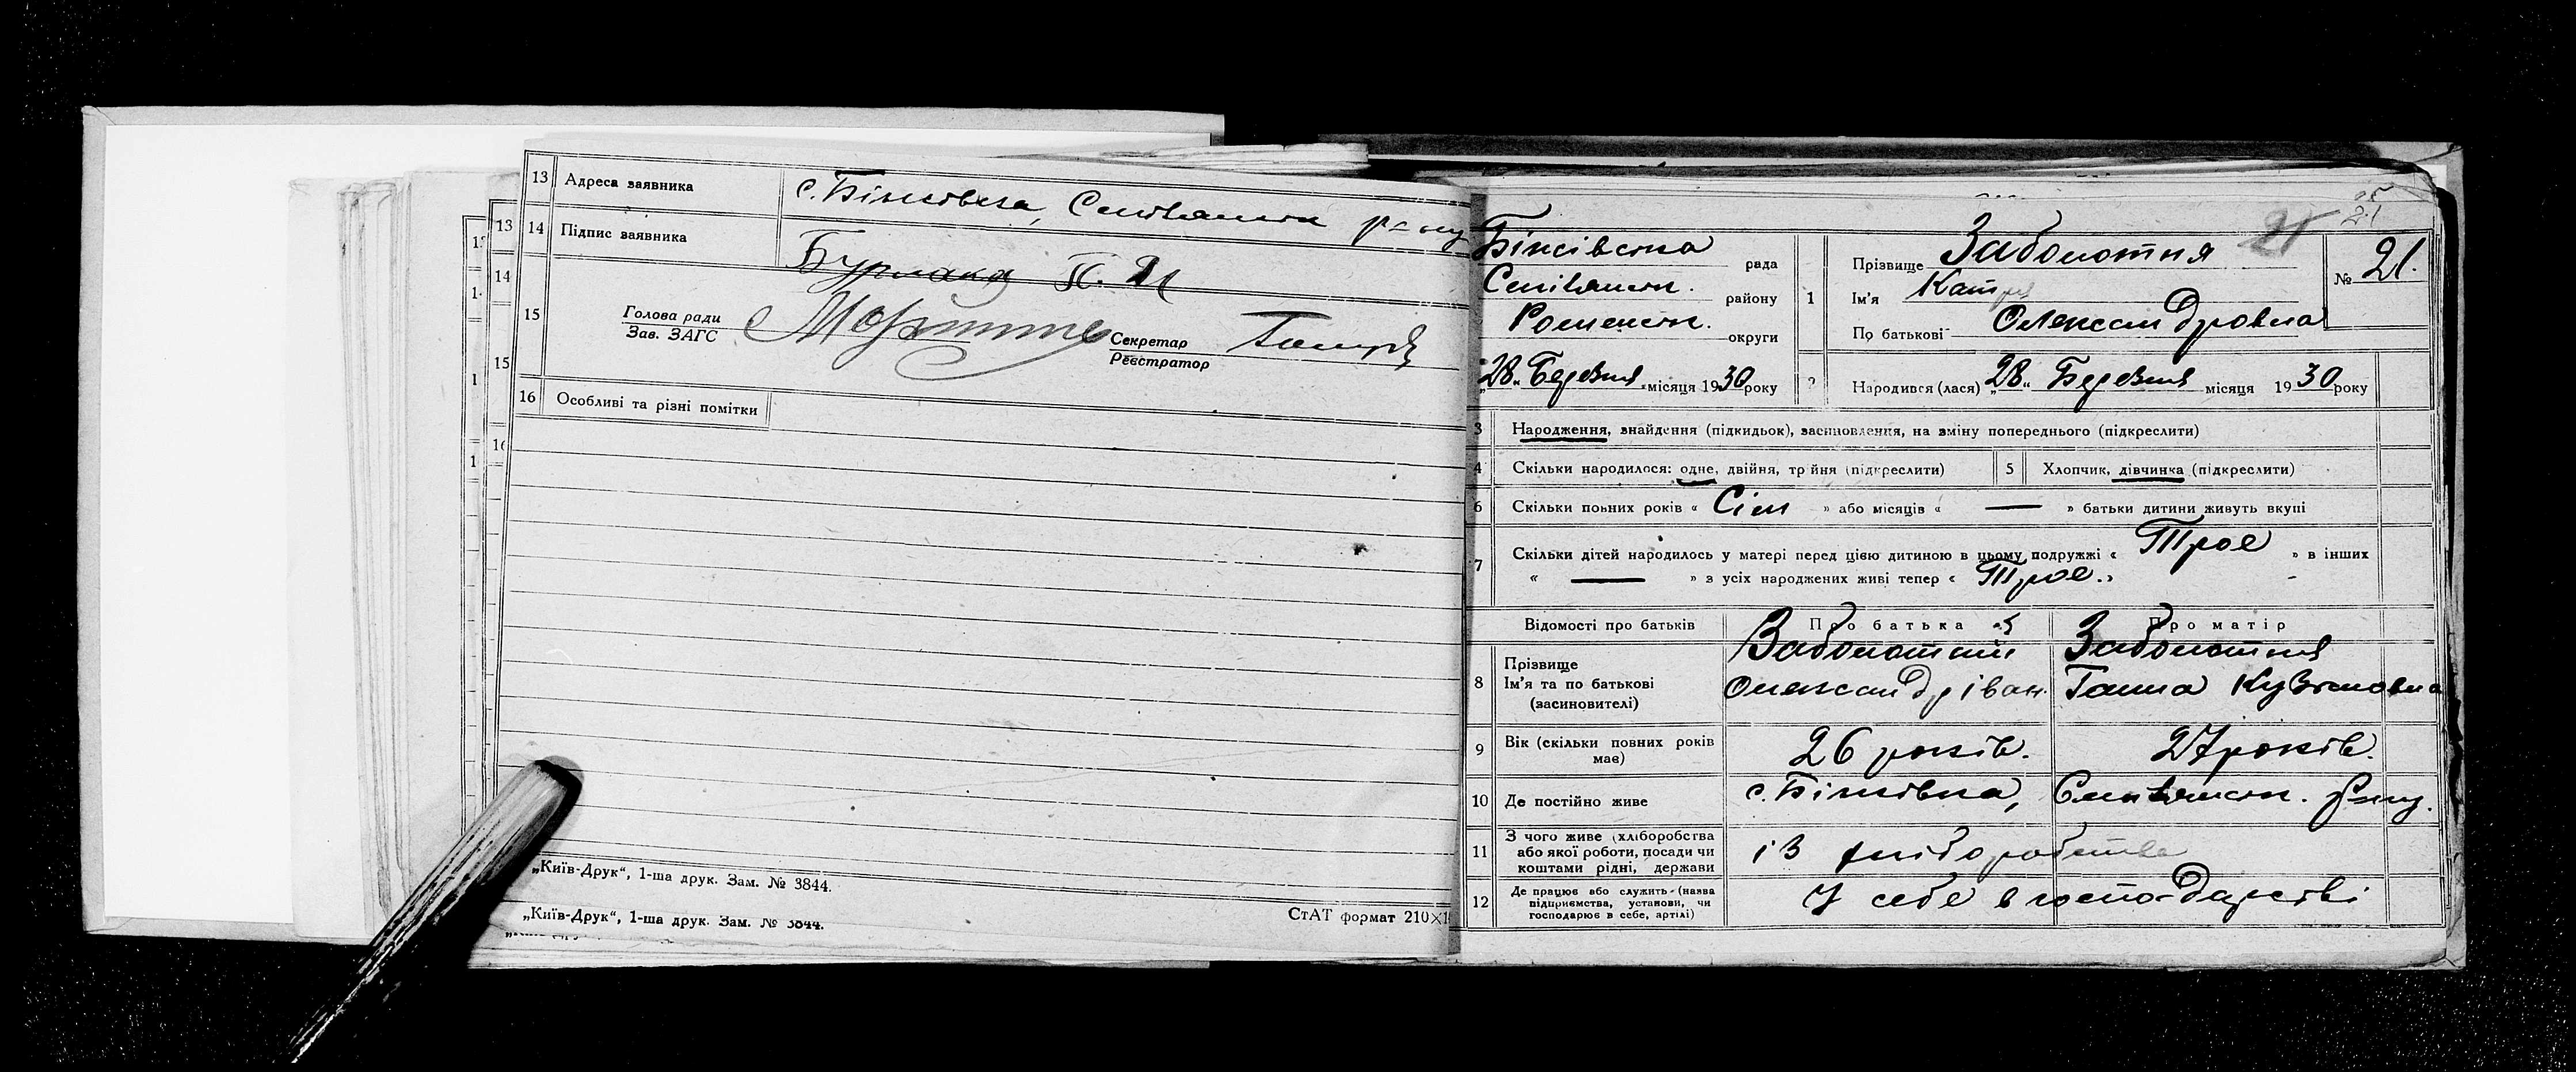 13 Адреса заявника с. Біжівка, Смілянськ р-ну
14 Підпис заявника Бурлака
15 Голова ради
Зав. ЗАГС
Секретар
Реєстратор
16 Особливі та різні помітки
„Київ-Друк“, 1-ша друк. Зам. № 3844.
„Київ-Друк“, 1-ша друк. Зам. № 3844.
СтАТ формат 210×1
25
21
21
Біжівська рада
району
Роменськ. округи
„28„ Березня місяця 1930 року
1 Прізвище Заболотня
Ім'я Катря
По батькові Олександровна
№ 21.
2 Народився (лася) „28„ Березня місяця 1930 року
3 Народження, знайдення (підкидьок), засиновлення, на зміну попереднього (підкреслити)
4 Скільки народилося: одне, двійня, трійня (підкреслити) 5 Хлопчик, дівчинка (підкреслити)
6 Скільки повних років « Сім » або місяців « — » батьки дитини живуть вкупі
7 Скільки дітей народилось у матері перед цією дитиною в цьому подружжі « Троє » в інших
« — » з усіх народжених живі тепер « Троє. »
Відомості про батьків Про батька Про матір
8 Прізвище Заболотний Заболотня
Ім'я та по батькові Олександр Іван. Ганна Кузьмовна
(засиновителі)
9 Вік (скільки повних років має) 26 років. 27 років.
10 Де постійно живе с. Біжівка, р-ну.
11 З чого живе (хліборобства
або якої роботи, посади чи
коштами рідні, держави із хліборобства
12 Де працює або служить (назва
підприємства, установи, чи
господарює в себе, артілі) У себе в господарстві